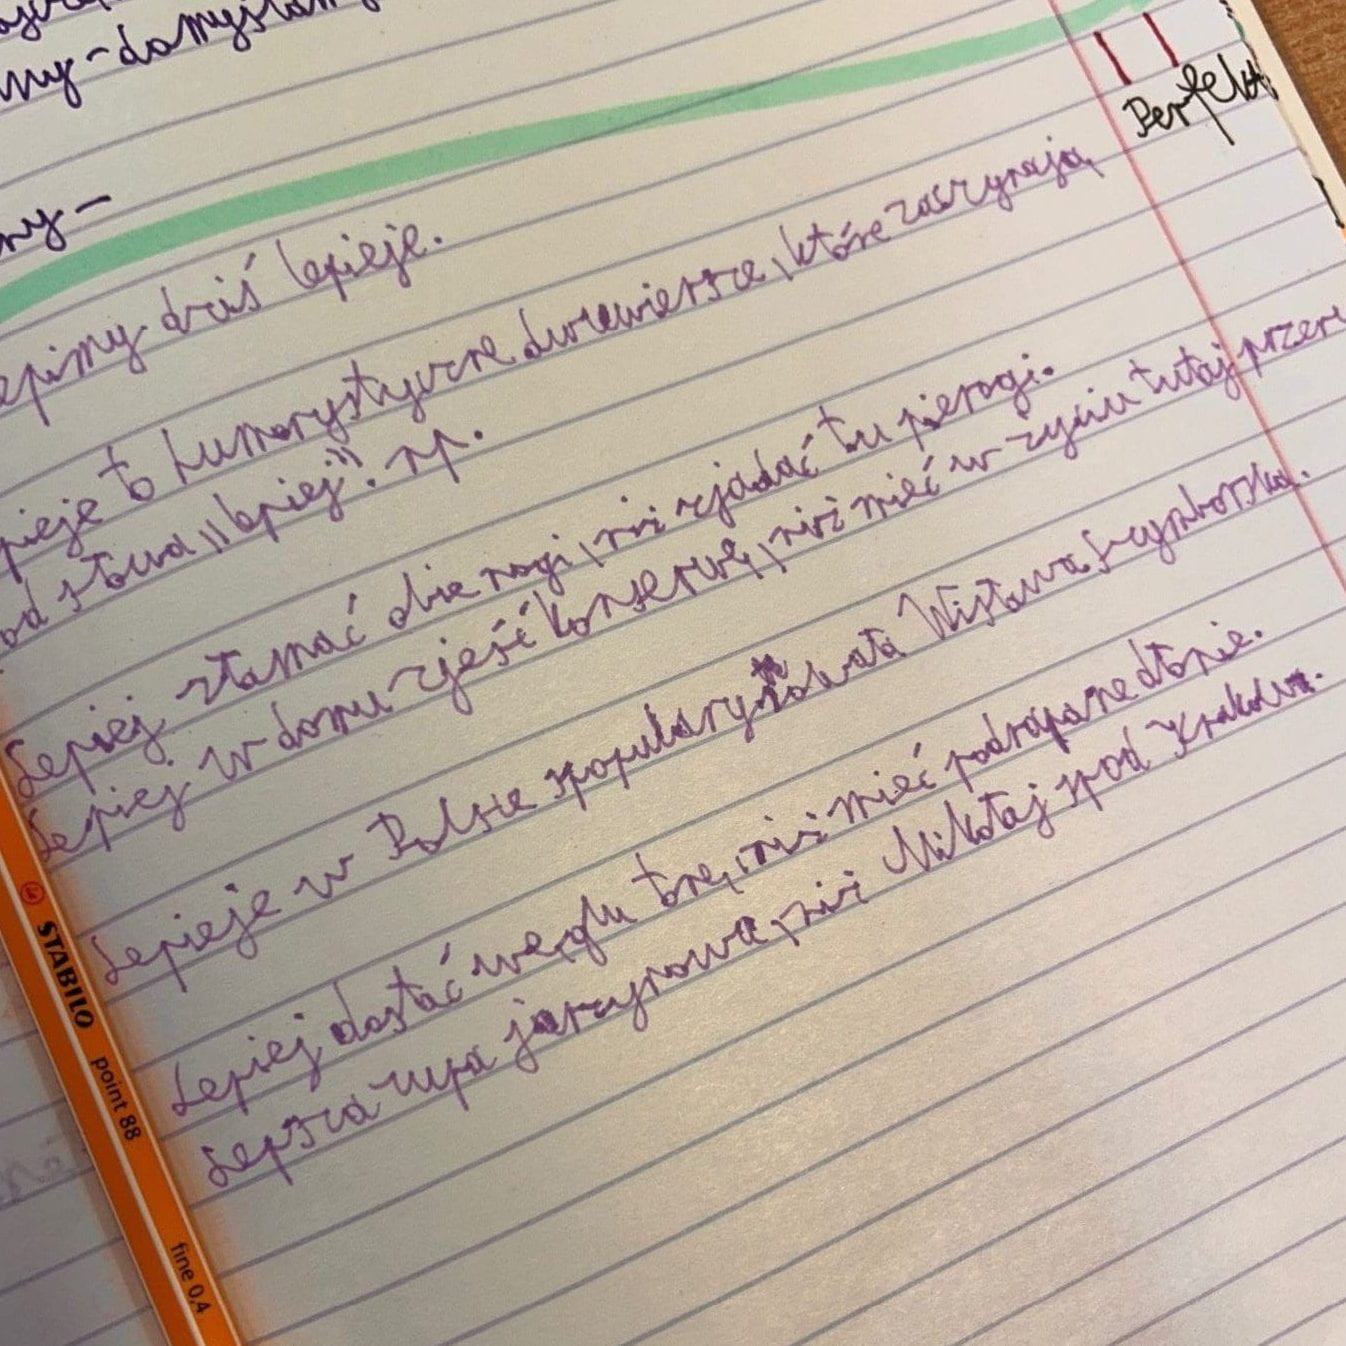 my-domyślam
Perfekt
my-
epimy dziś lepieje.
pieje to humorystyczne dwuwiersze, które zaczynają
od słowa „lepiej". np.
Lepiej złamać obie nogi, niż zjadać tu pierogi.
Lepiej w domu zjeść konserwę, niż mieć w życiu tutaj przerw
Lepieje w Polsce spopularyzowała Wisława Szymborska.
Lepiej dostać węglu tonę, niż mieć podrapane dłonie.
Lepsza zupa jarzynowa, niż Mikołaj spod Krakowa.
STABILO point 88 fine 0,4